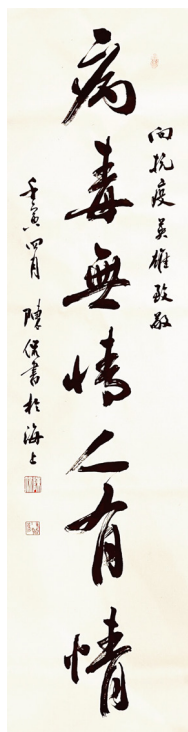 向抗疫英雄致敬
病毒無情人有情
壬寅四月 陳保書於海上